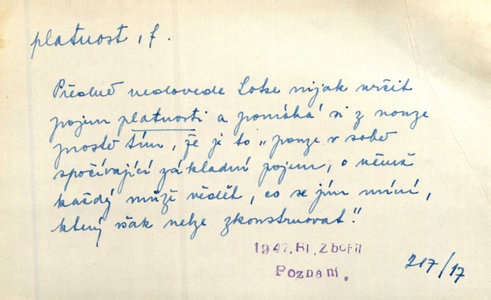 platnost, f.
Předně nedovede Lotze nijak určit
pojem platnosti a pomáhá si z nouze
prostě tím, že je to „pouze v sobě
spočívající základní pojem, o němž
každý může vědět, co se jím míní,
který však nelze zkonstruovat."
1947. Bl. Zbořil
Poznání.
217/17